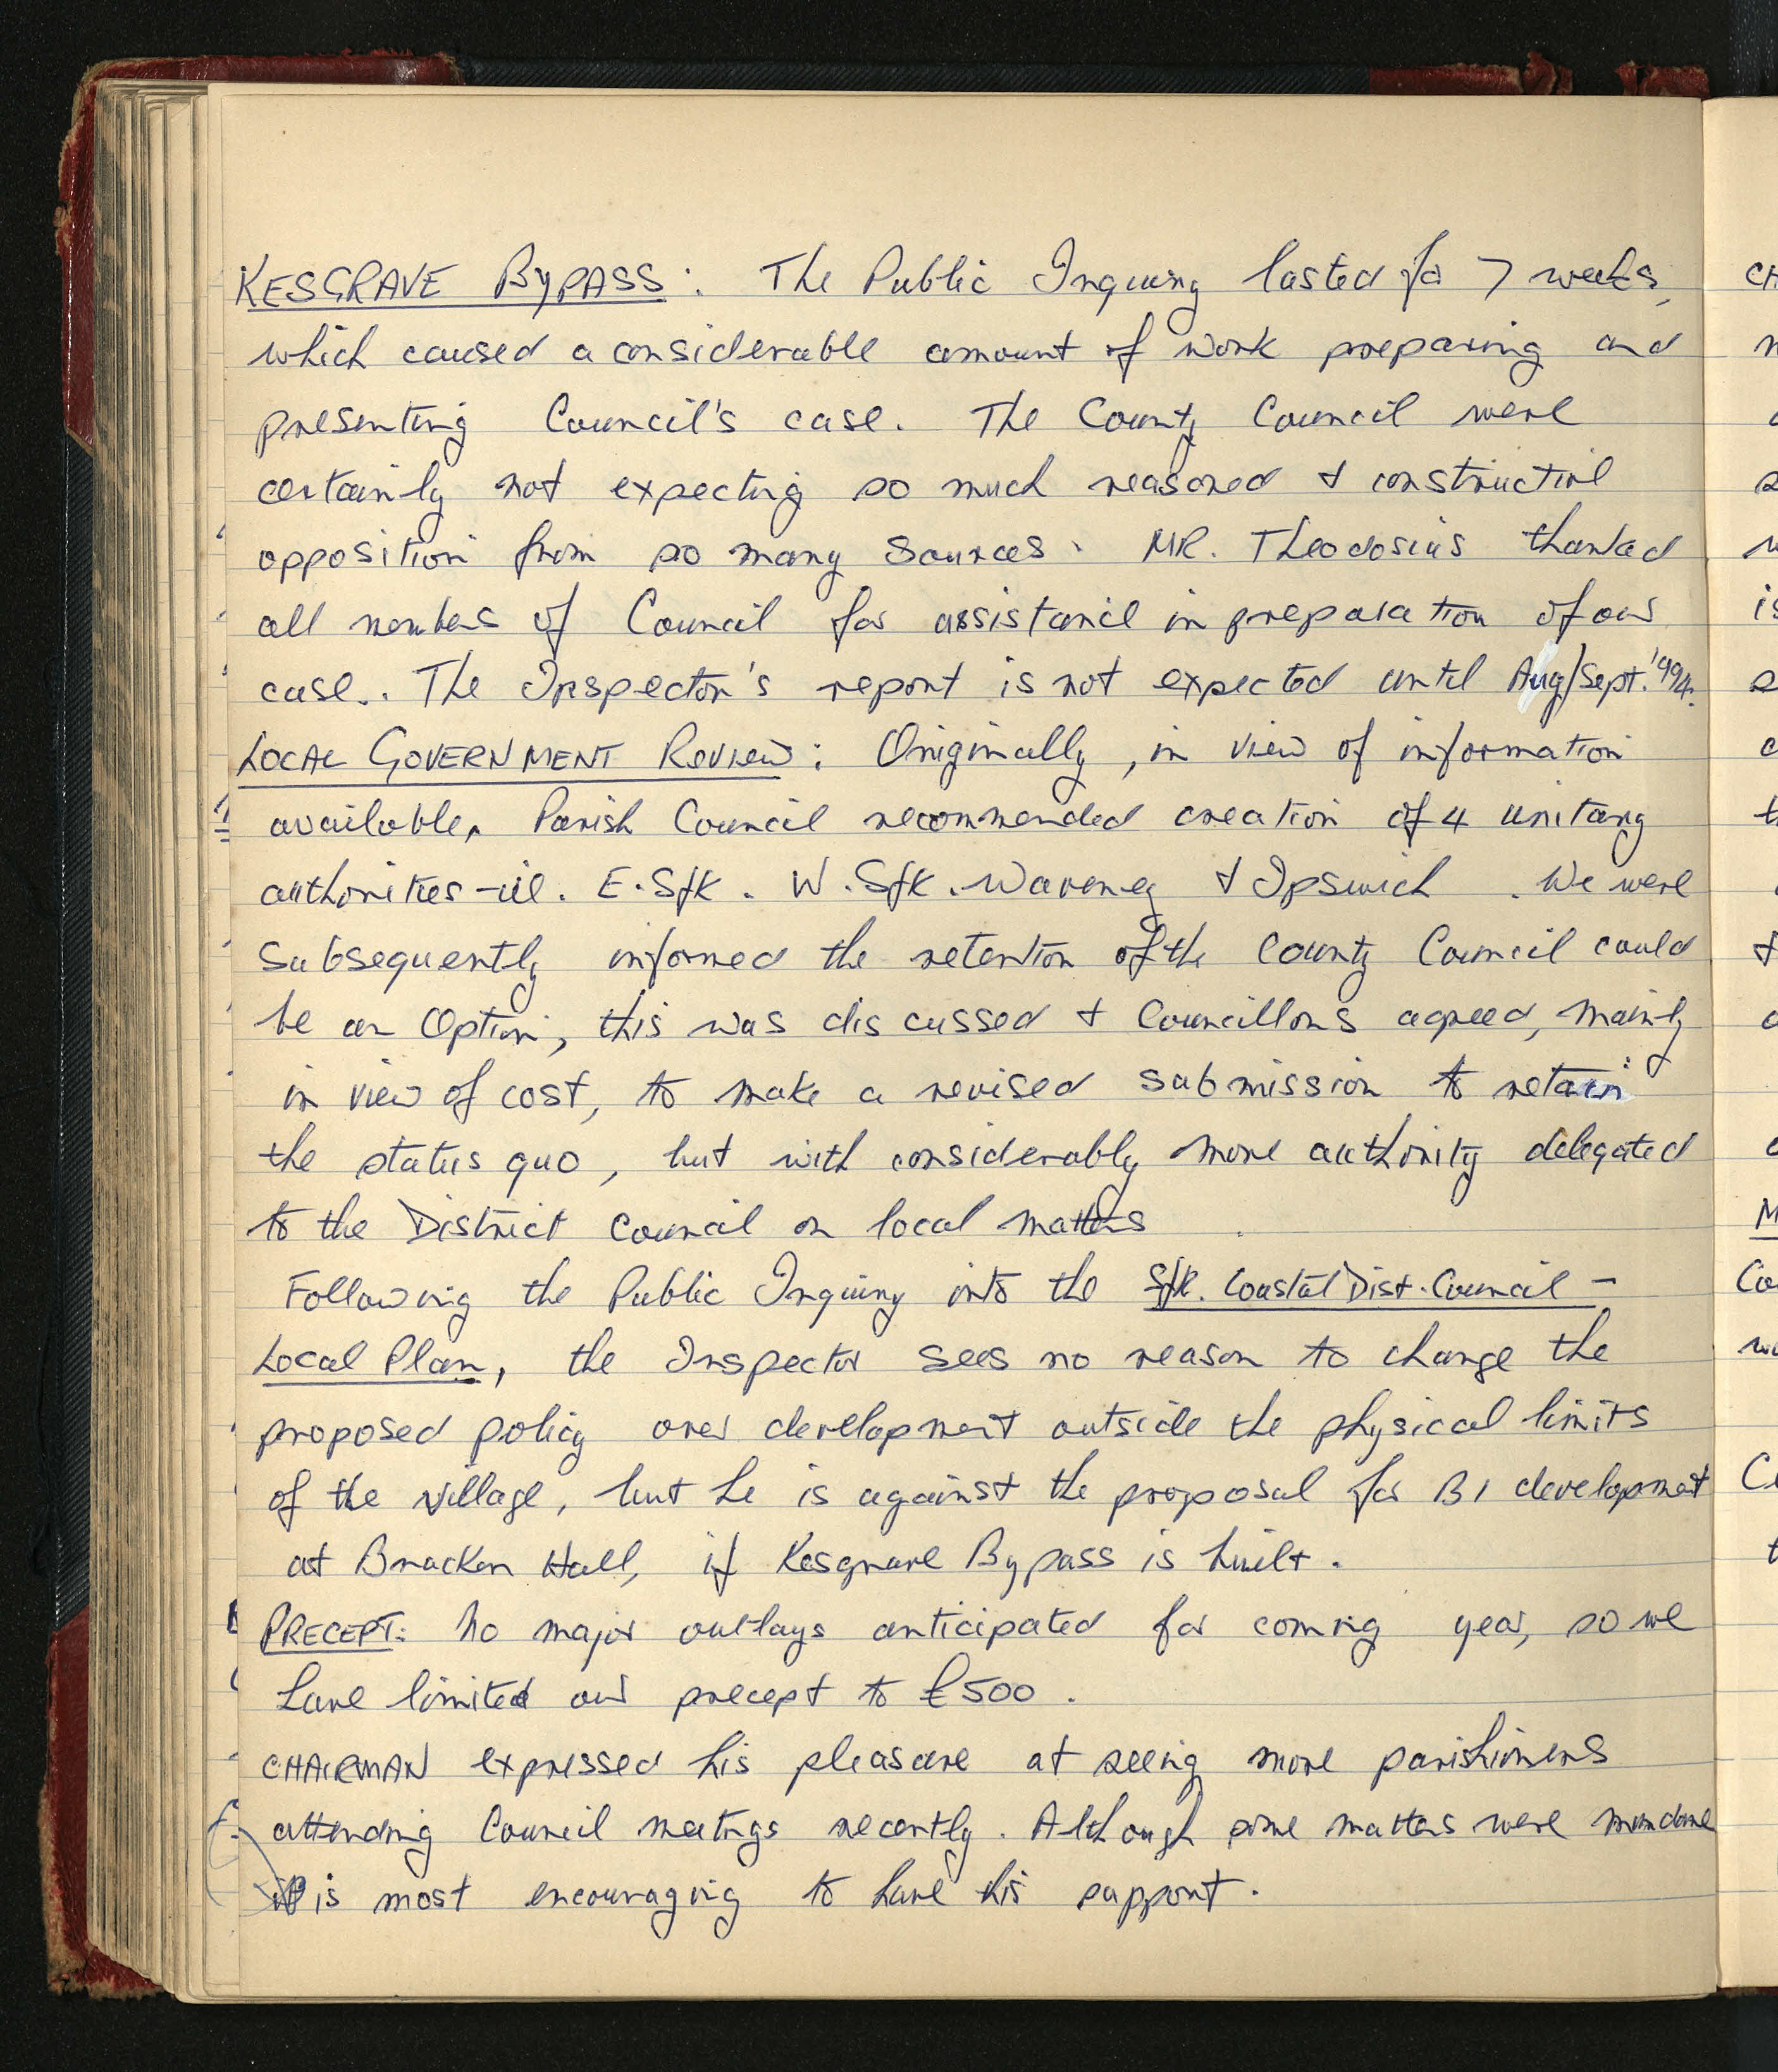 KESGRAVE BYPASS: The Public Inquiry lasted for 7 weeks,
which caused a considerable amount of work preparing and
presenting Council's case. The County Council were
certainly not expecting so much reasoned & constructive
opposition from so many sources. MR. Theodosius thanked
all members of Council for assistance in preparation of our
case.. The Inspector's report is not expected until Aug/Sept. '994.
LOCAL GOVERNMENT REVIEW: Originally, in view of information
available, Parish Council recommended creation of 4 unitary
authorities - ie. E. Sfk. W. Sfk. Waveney & Ipswich. We were
subsequently informed the retention of the County Council could
be an Option, this was discussed & Councillors agreed, mainly
in view of cost, to make a revised submission to retain
the status quo, but with considerably more authority delegated
to the District Council on local matters.
Following the Public Inquiry into the Sfk. Coastal Dist. Council -
Local Plan, the Inspector sees no reason to change the
proposed policy over development outside the physical limits
of the village, but he is against the proposal for B1 development
at Bracken Hall, if Kesgrave Bypass is built.
PRECEPT: No major outlays anticipated for coming year, so we
have limited our precept to £500.
CHAIRMAN expressed his pleasure at seeing more parishioners
attending Council meetings recently. Although some matters were mundane
it is most encouraging to have this support.